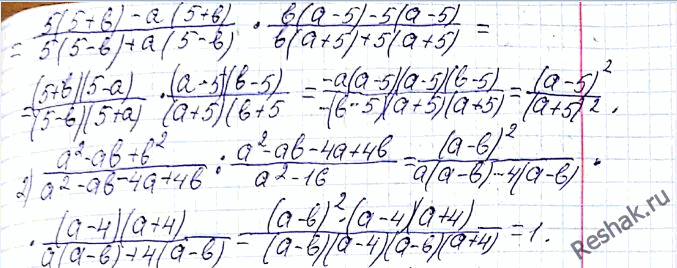 = 5(5+b) - a(5+b) / 5(5-b) + a(5-b) · b(a-5) - 5(a-5) / b(a+5) + 5(a+5) =
= (5+b)(5-a) / (5-b)(5+a) · (a-5)(b-5) / (a+5)(b+5 = -a(a-5)(a-5)(b-5) / -(b-5)(a+5)(a+5) = (a-5)² / (a+5)² .
2) a²-ab+b² / a²-ab-4a+4b : a²-ab-4a+4b / a²-16 = (a-b)² / a(a-b)-4(a-b) ·
· (a-4)(a+4) / a(a-b)+4(a-b) = (a-b)²·(a-4)(a+4) / (a-b)(a-4)(a-b)(a+4) = 1.
Reshak.ru